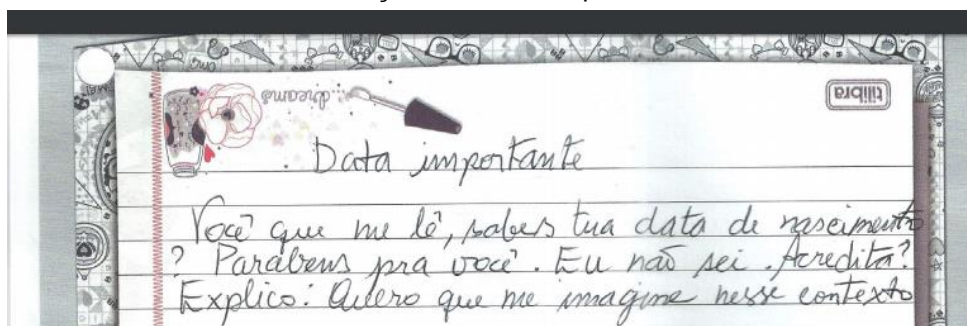 dreams...
tilibra
Data importante
Você que me lê, sabes tua data de nascimento
? Parabens pra você. Eu não sei. Acredita?
Explico: Quero que me imagine nesse contexto